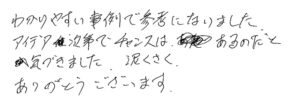 わかりやすい事例で参考になりました。
アイデア次第でチャンスは、あるのだと
気づきました。泥くさく、
ありがとうございます。